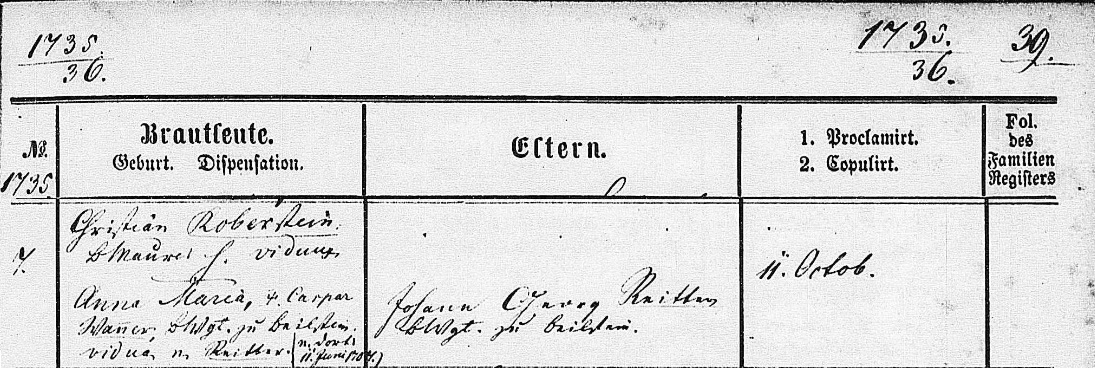 1735.
36.
1735.
36.
39.
No.
Brautleute.
Geburt. Dispensation.
Eltern.
1. Proclamirt.
2. Copulirt.
Fol.
des
Familien
Registers
1735
7.
Christian Koberstein,
h. viduus
Anna Maria, Caspar
Wanner, bWgt. zu Beilstein.
vidua, n. Reitter. (n. dort
11. Juni 1707.)
Johann Georg Reitter
bWgt. zu Beilstein.
11. Octob.